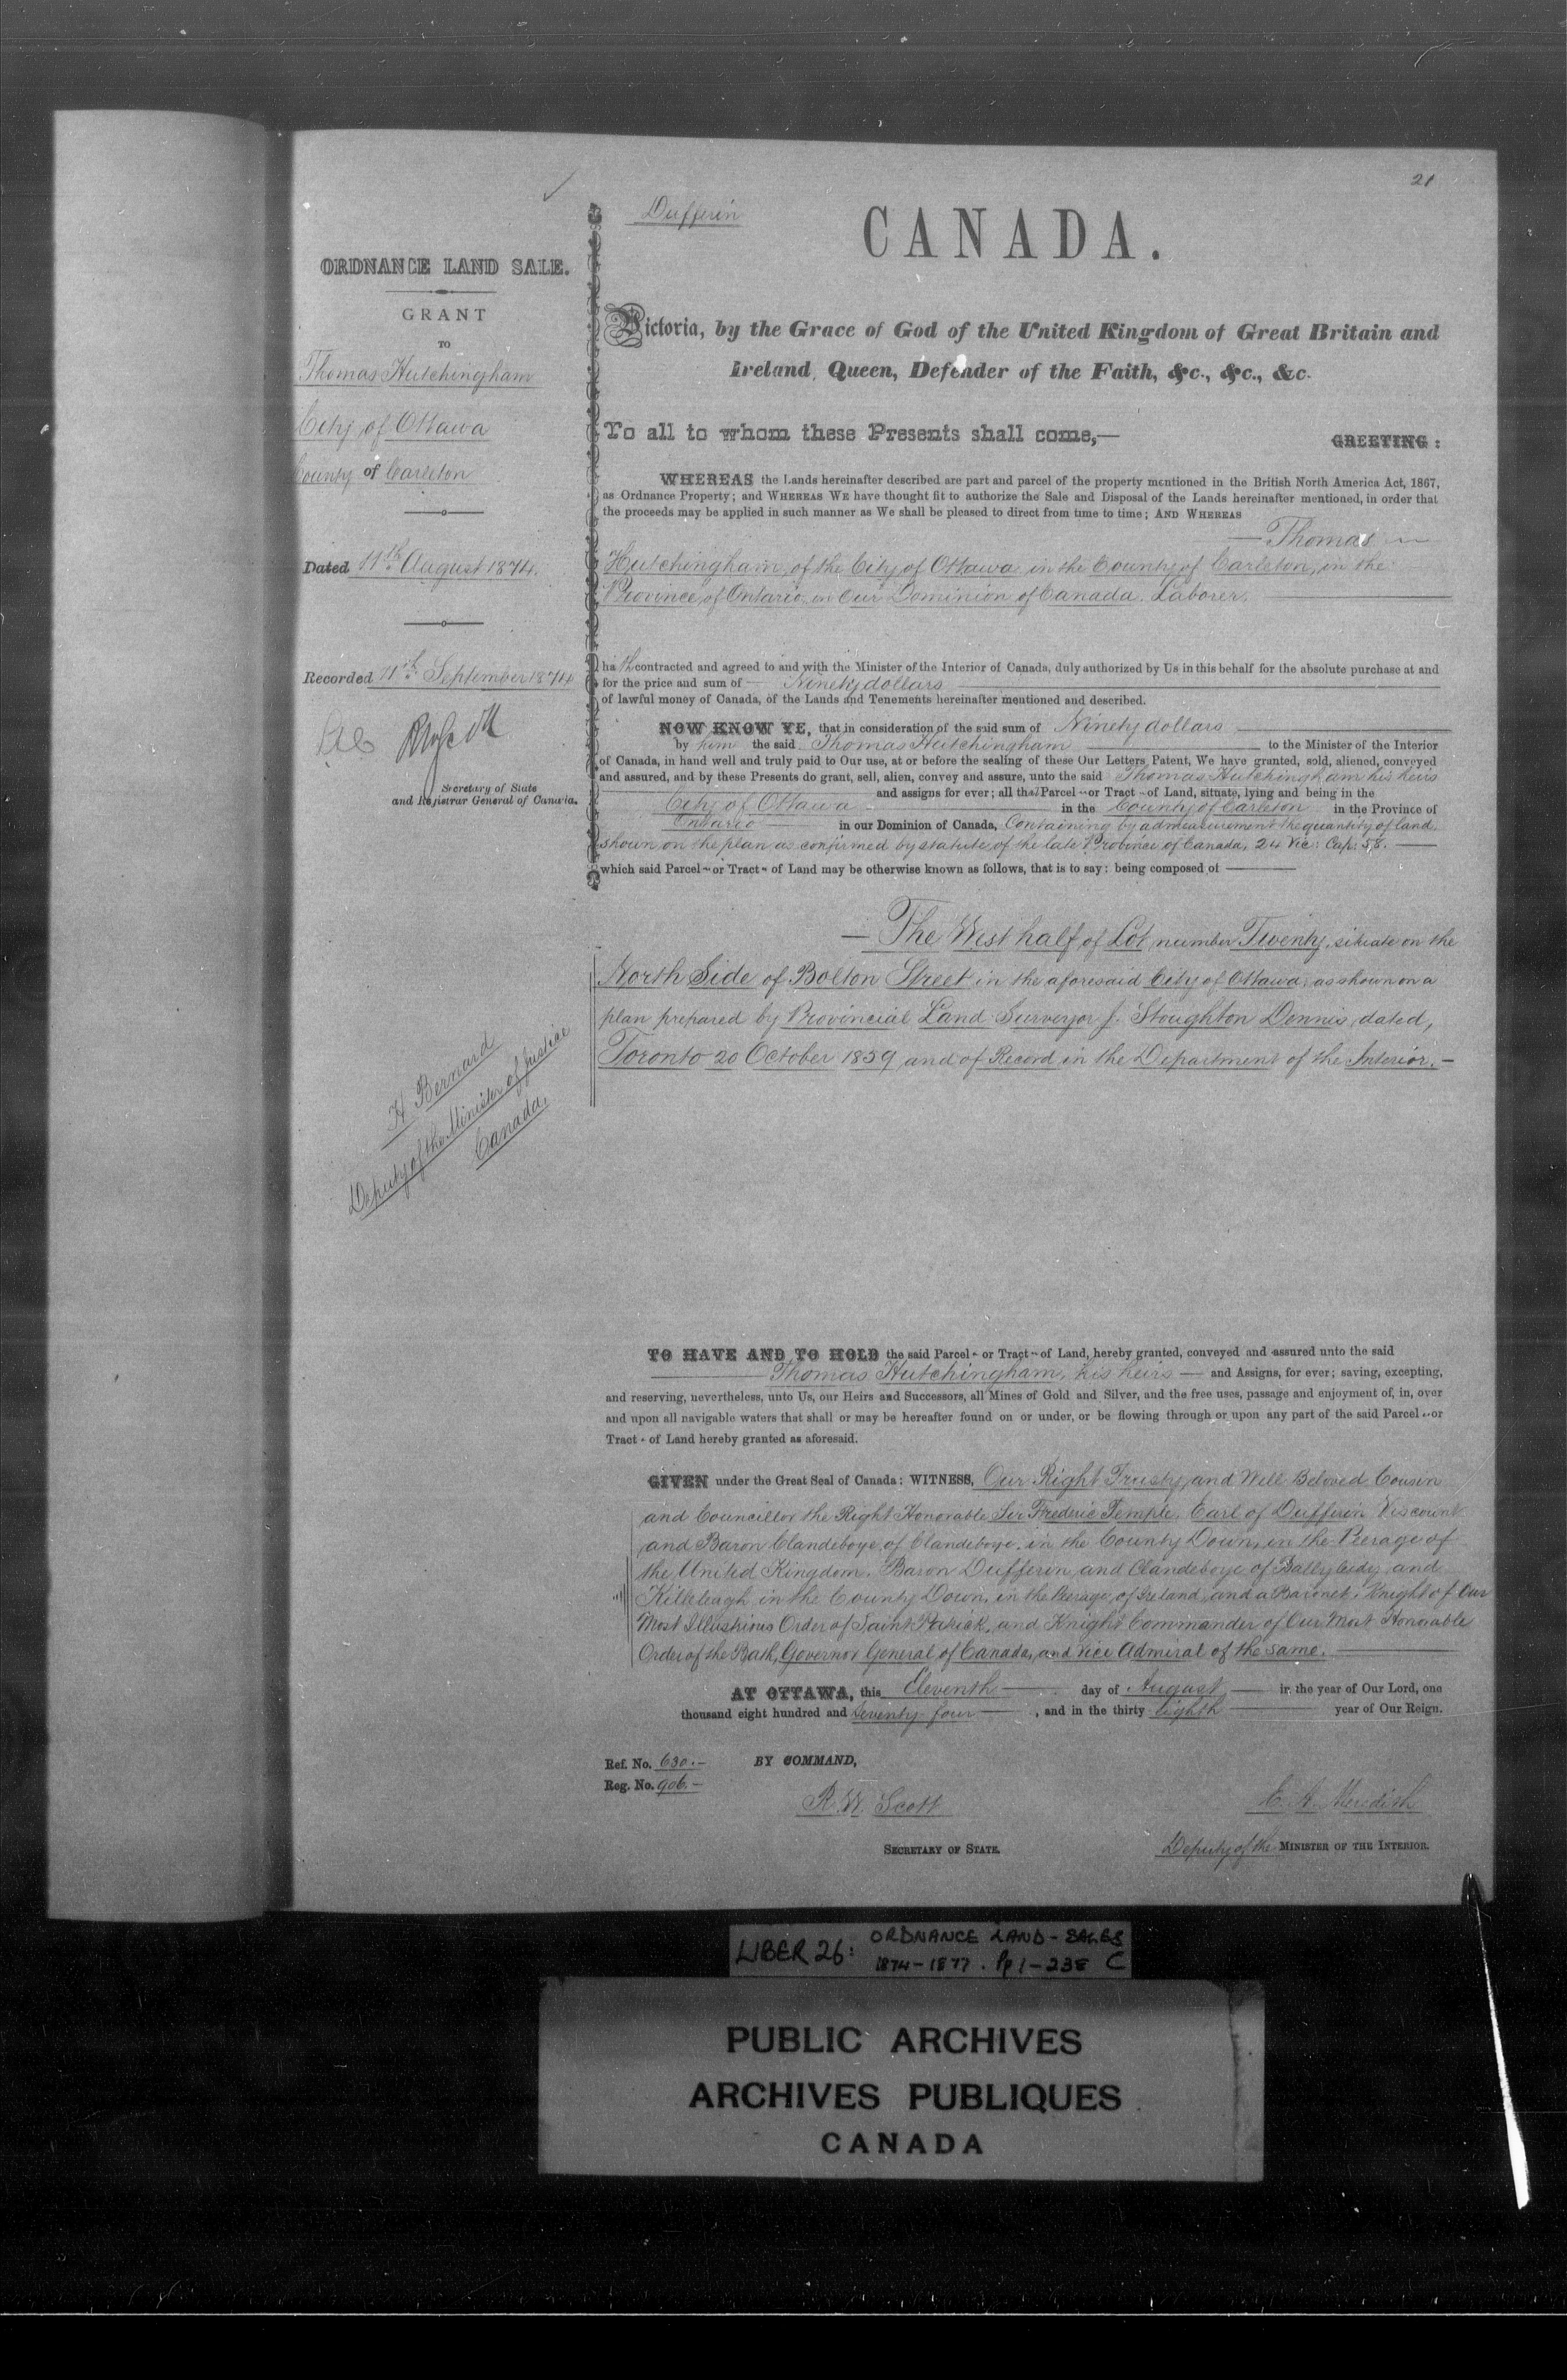 21
Dufferin
CANADA.
ORDNANCE LAND SALE.
GRANT
TO
Thomas Hutchingham
City of Ottawa
County of Carleton
Dated 11th August 1874.
Recorded 11th September 1874
Secretary of State
and Registrar General of Canada.
H Bernard
Deputy of the Minister of Justice
Canada.
Victoria, by the Grace of God of the United Kingdom of Great Britain and
Ireland, Queen, Defender of the Faith, &c., &c., &c.
To all to whom these Presents shall come,—
GREETING:
WHEREAS the Lands hereinafter described are part and parcel of the property mentioned in the British North America Act, 1867,
as Ordnance Property; and WHEREAS WE have thought fit to authorize the Sale and Disposal of the Lands hereinafter mentioned, in order that
the proceeds may be applied in such manner as We shall be pleased to direct from time to time; AND WHEREAS
— Thomas —
Hutchingham, of the City of Ottawa in the County of Carleton, in the
Province of Ontario, in Our Dominion of Canada. Laborer.
hath contracted and agreed to and with the Minister of the Interior of Canada, duly authorized by Us in this behalf for the absolute purchase at and
for the price and sum of — Ninety dollars
of lawful money of Canada, of the Lands and Tenements hereinafter mentioned and described.
NOW KNOW YE, that in consideration of the said sum of Ninety dollars
by him the said Thomas Hutchingham to the Minister of the Interior
of Canada, in hand well and truly paid to Our use, at or before the sealing of these Our Letters Patent, We have granted, sold, aliened, conveyed
and assured, and by these Presents do grant, sell, alien, convey and assure, unto the said Thomas Hutchingham his heirs
and assigns for ever; all that Parcel or Tract of Land, situate, lying and being in the
City of Ottawa in the County of Carleton in the Province of
Ontario in our Dominion of Canada, Containing by admeasurement the quantity of land
shown on the plan as confirmed by statute of the late Province of Canada, 24 Vic: Cap: 58. —
which said Parcel or Tract of Land may be otherwise known as follows, that is to say: being composed of —
— The West half of Lot number Twenty, situate on the
North Side of Bolton Street in the aforesaid City of Ottawa, as shown on a
plan prepared by Provincial Land Surveyor J. Stoughton Dennis, dated,
Toronto 20 October 1859 and of Record in the Department of the Interior. —
TO HAVE AND TO HOLD the said Parcel or Tract of Land, hereby granted, conveyed and assured unto the said
Thomas Hutchingham, his heirs — and Assigns, for ever; saving, excepting,
and reserving, nevertheless, unto Us, our Heirs and Successors, all Mines of Gold and Silver, and the free uses, passage and enjoyment of, in, over
and upon all navigable waters that shall or may be hereafter found on or under, or be flowing through or upon any part of the said Parcel or
Tract of Land hereby granted as aforesaid.
GIVEN under the Great Seal of Canada: WITNESS, Our Right Trusty and Well Beloved Cousin
and Councillor the Right Honorable Sir Frederic Temple, Earl of Dufferin Viscount
and Baron Clandeboye, of Clandeboye, in the County Down, in the Peerage of
the United Kingdom, Baron Dufferin and Clandeboye of Ballyleidy and
Killeleagh in the County Down, in the Peerage of Ireland, and a Baronet. Knight of Our
Most Illustrious Order of Saint Patrick, and Knight Commander of Our Most Honorable
Order of the Bath, Governor General of Canada, and Vice Admiral of the same.
AT OTTAWA, this Eleventh day of August in the year of Our Lord, one
thousand eight hundred and seventy four, and in the thirty eighth year of Our Reign.
Ref. No. 630.—
BY COMMAND,
Reg. No. 906.—
R. W. Scott
SECRETARY OF STATE.
E. A. Meredith
Deputy of the MINISTER OF THE INTERIOR.
LIBER 26: ORDNANCE LAND-SALES
1874-1877. Pp 1-238 C
PUBLIC ARCHIVES
ARCHIVES PUBLIQUES
CANADA